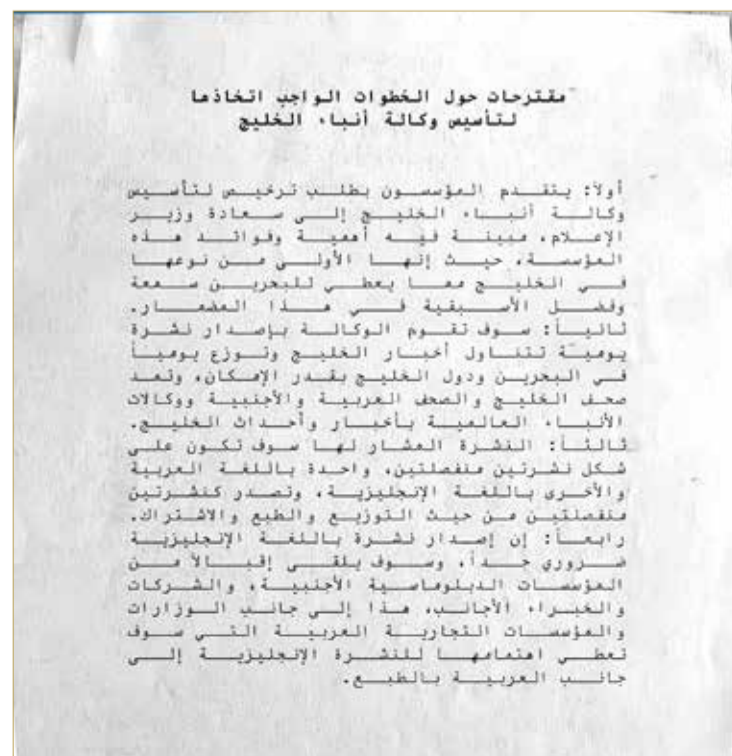 مقترحات حول الخطوات الواجب اتخاذها
لتأسيس وكالة أنباء الخليج
أولاً: يتقدم المؤسسون بطلب ترخيص لتأسيس
وكالة أنباء الخليج إلى سعادة وزير
الإعلام، مبينة فيه أهمية وفوائد هذه
المؤسسة، حيث إنها الأولى من نوعها
في الخليج مما يعطي للبحرين سمعة
وفضل الأسبقية في هذا المضمار.
ثانياً: سوف تقوم الوكالة بإصدار نشرة
يومية تتناول أخبار الخليج وتوزع يومياً
في البحرين ودول الخليج بقدر الإمكان، وتمد
صحف الخليج والصحف العربية والأجنبية ووكالات
الأنباء العالمية بأخبار وأحداث الخليج.
ثالثاً: النشرة المشار لها سوف تكون على
شكل نشرتين منفصلتين، واحدة باللغة العربية
والأخرى باللغة الإنجليزية، وتصدر كنشرتين
منفصلتين من حيث التوزيع والطبع والاشتراك.
رابعاً: إن إصدار نشرة باللغة الإنجليزية
ضروري جداً، وسوف يلقى إقبالاً من
المؤسسات الدبلوماسية الأجنبية، والشركات
والخبراء الأجانب، هذا إلى جانب الوزارات
والمؤسسات التجارية العربية التي سوف
تعطي اهتمامها للنشرة الإنجليزية إلى
جانب العربية بالطبع.